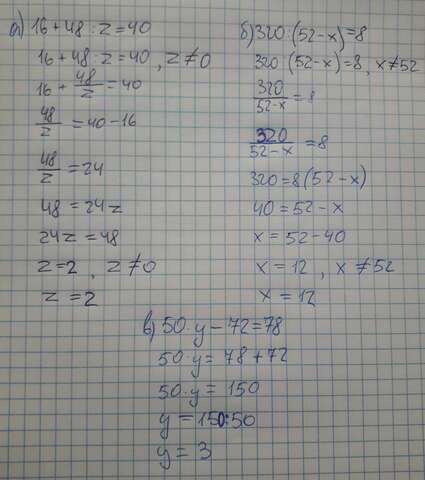 а) 16+48:z=40
16+48:z=40, z≠0
16+48/z=40
48/z=40-16
48/z=24
48=24z
24z=48
z=2, z≠0
z=2
б) 320:(52-x)=8
320:(52-x)=8, x≠52
320/52-x=8
320/52-x=8
320=8(52-x)
40=52-x
x=52-40
x=12, x≠52
x=12
в) 50·y-72=78
50·y=78+72
50·y=150
y=150:50
y=3